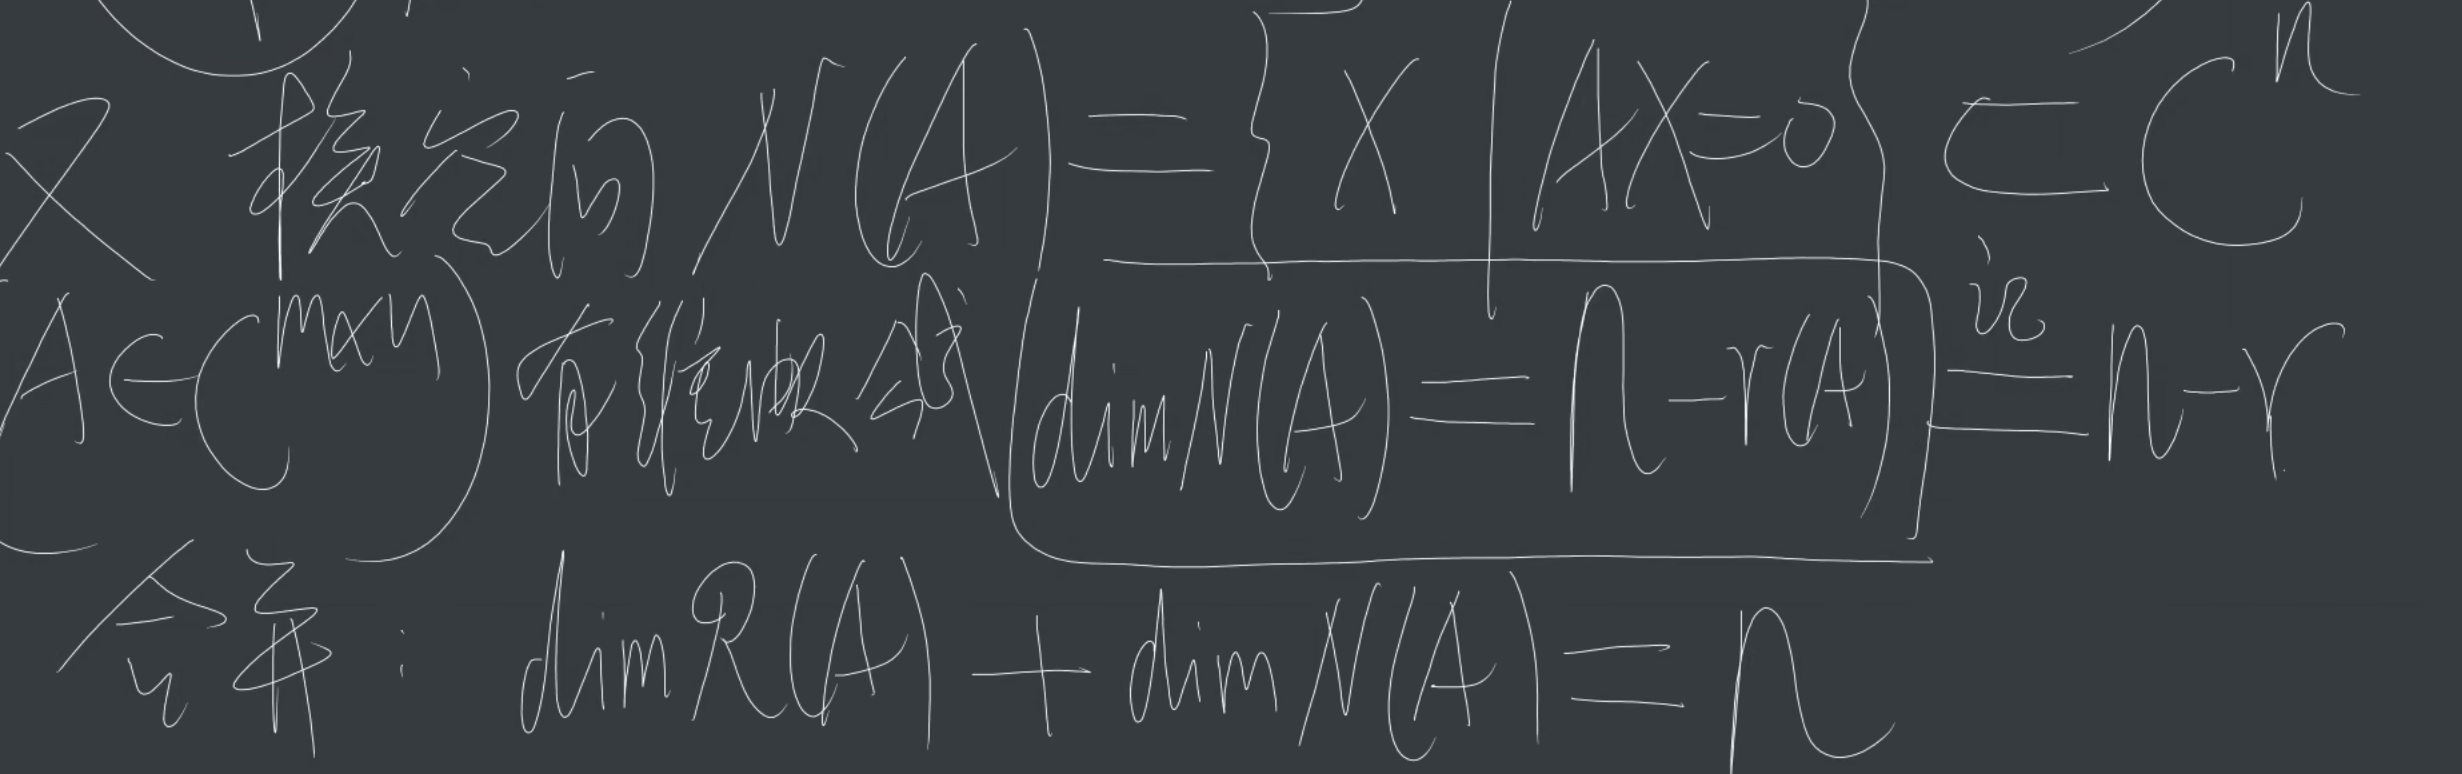 又 核空间 N(A) = {X | AX=0} ⊂ Cⁿ
A∈C^{m×n}) 有维数公式 dim N(A) = n-r(A) 记= n-r
合并: dim R(A) + dim N(A) = n